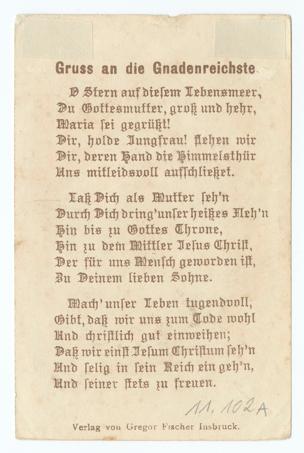 Gruss an die Gnadenreichste
O Stern auf diesem Lebensmeer,
Du Gottesmutter, groß und hehr,
Maria sei gegrüßt!
Dir, holde Jungfrau! flehen wir
Dir, deren Hand die Himmelsthür
Uns mitleidsvoll aufschließet.
Laß Dich als Mutter seh'n
Durch Dich dring' unser heißes Fleh'n
Hin bis zu Gottes Throne,
Hin zu dem Mittler Jesus Christ,
Der für uns Mensch geworden ist,
Zu Deinem lieben Sohne.
Mach' unser Leben tugendvoll,
Gibt, daß wir uns zum Tode wohl
Und christlich gut einweihen;
Daß wir einst Jesum Christum seh'n
Und selig in sein Reich eingeh'n,
Und seiner stets zu freuen.
11.102A
Verlag von Gregor Fischer Insbruck.